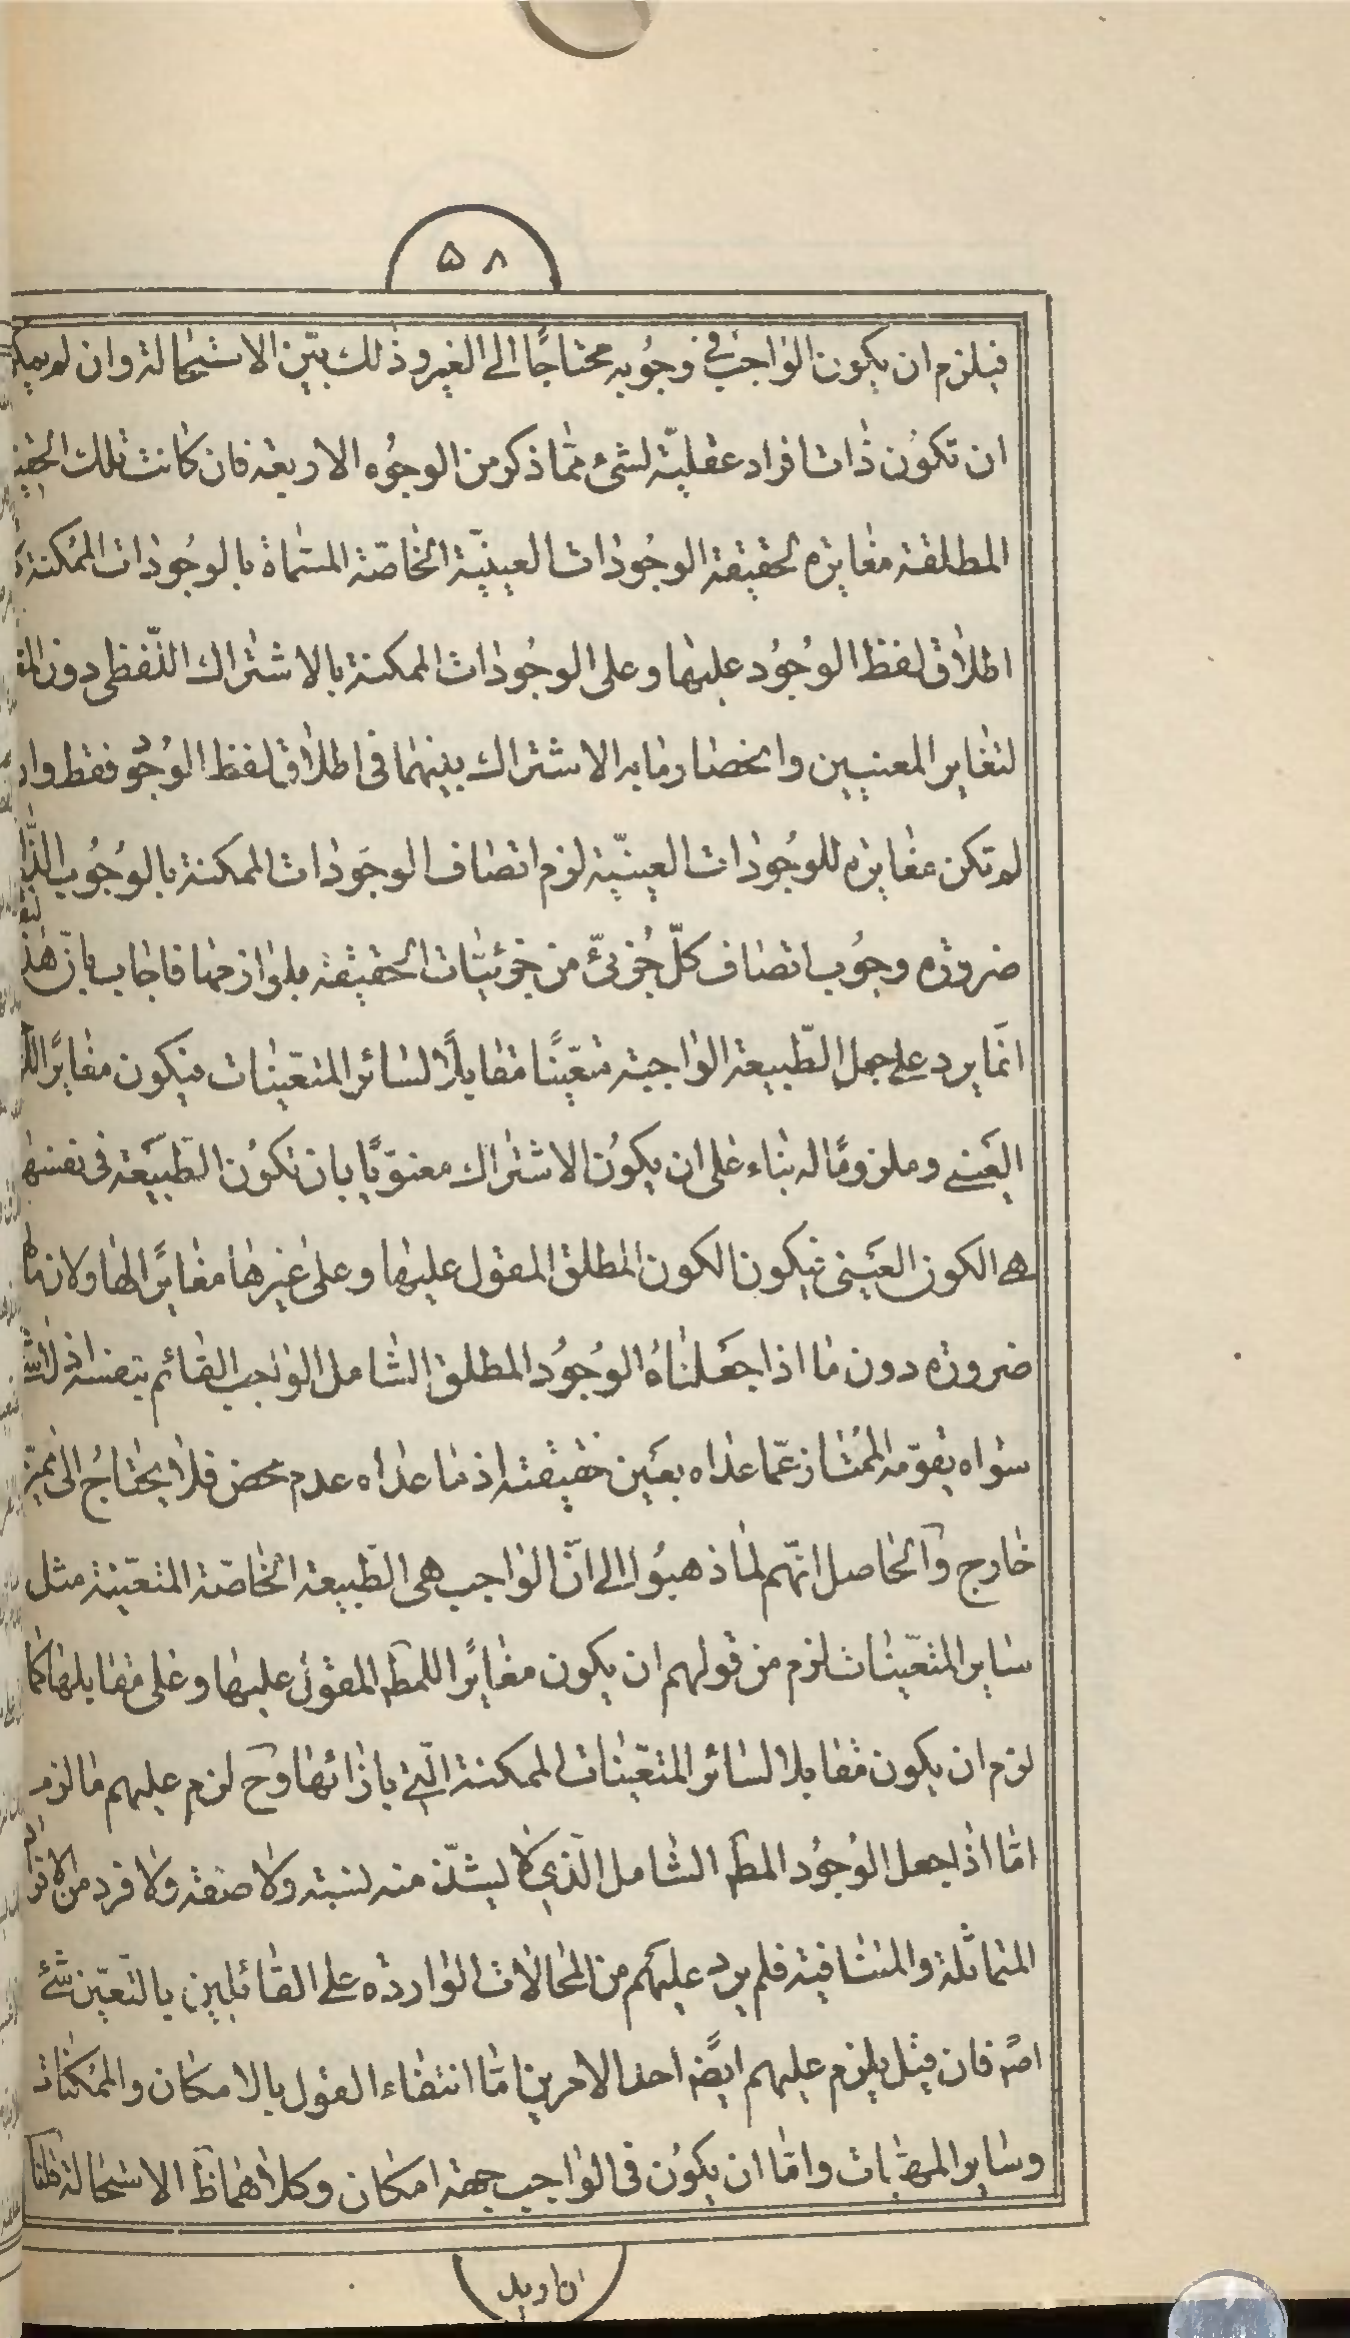 ۵۸
فيلزم ان يكون الواجب في وجوبه محتاجًا الى الغير وذلك بيّن الاستحالة وان لم
ان تكون ذات افراد عقليّة لشئ ممّا ذكر من الوجوه الاربعة فان كانت تلك
المطلقة مغايرة لحقيقة الوجودات العينيّة الخاصّة المسمّاة بالوجودات الممكنة
اطلاق لفظ الوجود عليها وعلى الوجودات الممكنة بالاشتراك اللّفظى دون
لتغاير المعنيين وانحصار ما به الاشتراك بينهما فى اطلاق لفظ الوجود فقط وان
لم تكن مغايرة للوجودات العينيّة لزم اتصاف الوجودات الممكنة بالوجوب
ضرورة وجوب اتصاف كلّ جزئىّ من جزئيّات الحقيقة بلوازمها فاجاب بانّ هذا
انّما يرد على جعل الطّبيعة الواجبة متعيّنًا مقابلًا لسائر المتعيّنات فيكون مغايرًا
العينى وملزومًا له بناء على ان يكون الاشتراك معنويّا بان تكون الطّبيعة فى نفسها
هى الكون العينى فيكون الكون المطلق المقول عليها وعلى غيرها مغايرًا لها ولازما لها
ضرورة دون ما اذا جعلناه الوجود المطلق الشامل الواجب القائم بنفسه اذ لا شئ
سواه يقوّمه الممتاز عمّا عداه بعين حقيقته اذ ما عداه عدم محض فلا يحتاج الى مميّز
خارج والحاصل انّهم لما ذهبوا الى انّ الواجب هى الطّبيعة الخاصّة المتعيّنة مثل
ساير المتعيّنات لزم من قولهم ان يكون مغايرًا للمط المقول عليها وعلى مقابلها كما
لزم ان يكون مقابلا لسائر المتعيّنات الممكنة الّتى بازائها وح لزم عليهم ما لزم
امّا اذا جعل الوجود المط الشامل الّذى لا يشذّ منه نسبة ولا صفة ولا فرد من الافراد
المتماثلة والمتنافية فلم يرد عليهم من المحالات الواردة على القائلين بالتعيّن شئ
اصلا فان قيل يلزم عليهم ايضا احد الامرين امّا انتفاء القول بالامكان والممكنات
وساير المهيّات وامّا ان يكون فى الواجب جهة امكان وكلاهما ظ الاستحالة قلنا
ان اريد